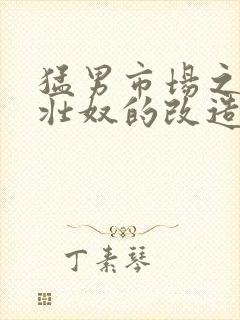 猛男市场之
壮奴的改造
丁素琴